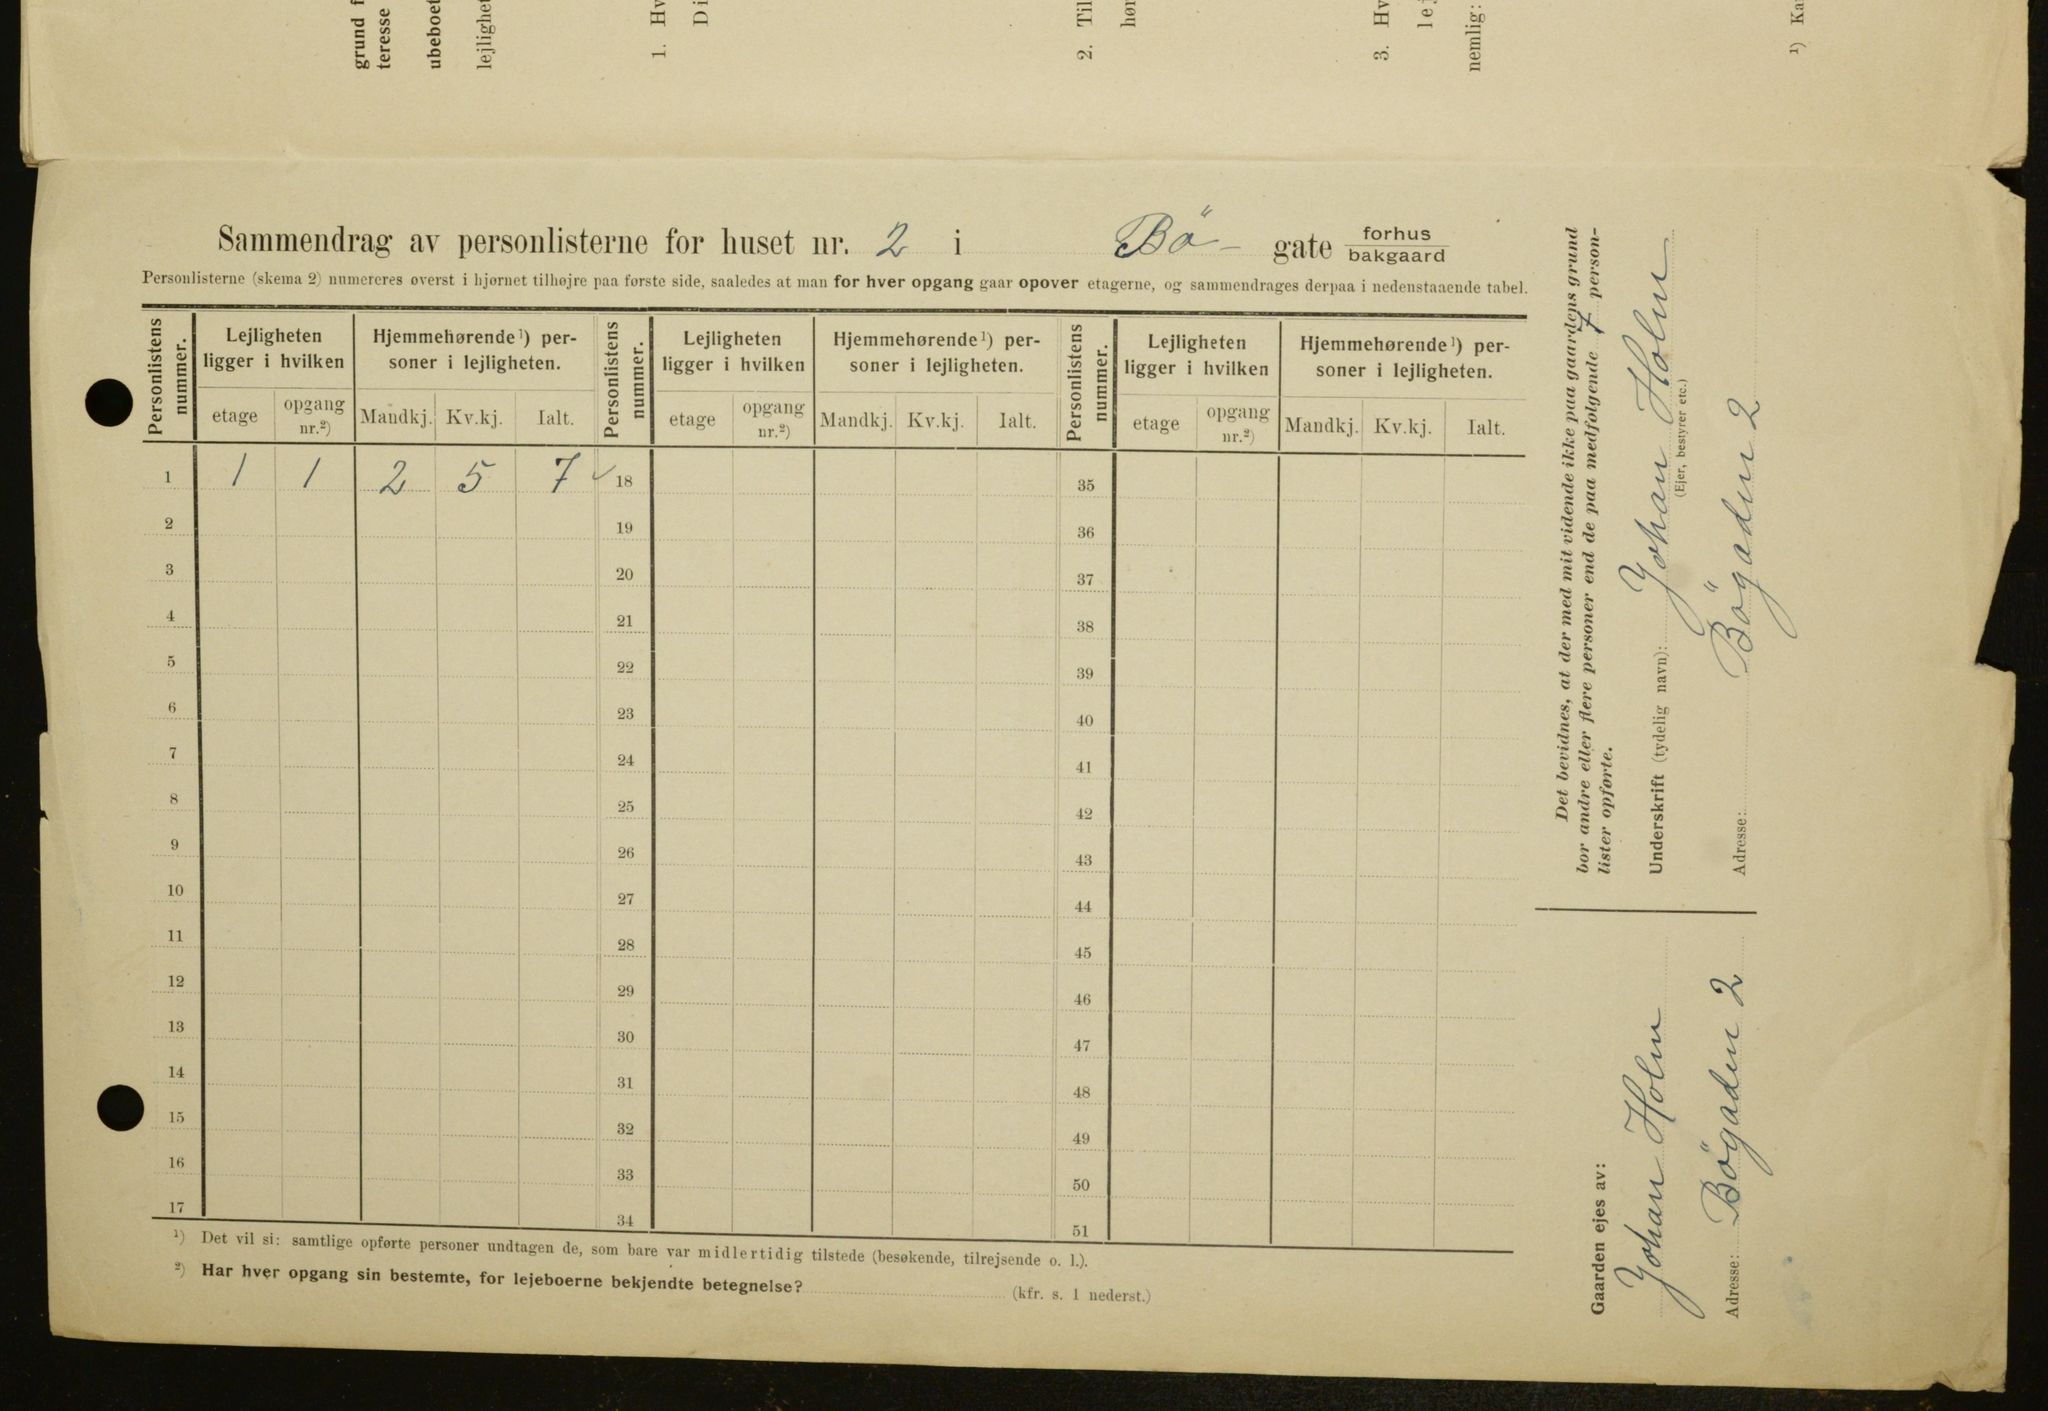 grund f
teresse
ubeboet
lejlighet
1. Hv
Di
2. Til
hør
3. Hv
lej
nemlig:
¹) Ka
Sammendrag av personlisterne for huset nr. 2 i Bö- gate forhus
bakgaard
Personlisterne (skema 2) numereres øverst i hjørnet tilhøjre paa første side, saaledes at man for hver opgang gaar opover etagerne, og sammendrages derpaa i nedenstaaende tabel.
Personlistens nummer. Lejligheten ligger i hvilken Hjemmehørende¹) personer i lejligheten. Personlistens nummer. Lejligheten ligger i hvilken Hjemmehørende¹) personer i lejligheten. Personlistens nummer. Lejligheten ligger i hvilken Hjemmehørende¹) personer i lejligheten.
etage opgang nr.²) Mandkj. Kv.kj. Ialt. etage opgang nr.²) Mandkj. Kv.kj. Ialt. etage opgang nr.²) Mandkj. Kv.kj. Ialt.
1 1 1 2 5 7 ✓ 18 35
2 19 36
3 20 37
4 21 38
5 22 39
6 23 40
7 24 41
8 25 42
9 26 43
10 27 44
11 28 45
12 29 46
13 30 47
14 31 48
15 32 49
16 33 50
17 34 51
¹) Det vil si: samtlige opførte personer undtagen de, som bare var midlertidig tilstede (besøkende, tilrejsende o. l.).
²) Har hver opgang sin bestemte, for lejeboerne bekjendte betegnelse? (kfr. s. 1 nederst.)
Det bevidnes, at der med mit vidende ikke paa gaardens grund
bor andre eller flere personer end de paa medfølgende 7 person-
lister opførte.
Underskrift (tydelig navn): Johan Holm
(Ejer, bestyrer etc.)
Adresse: Bögaden 2
Gaarden ejes av:
Johan Holm
Adresse: Bögaden 2